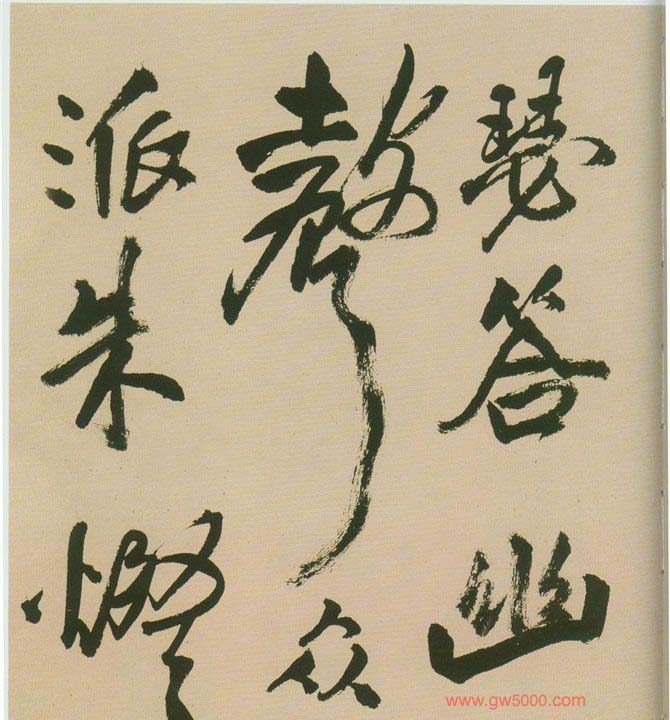 瑟答幽
聲众
派朱燈
www.gw5000.com